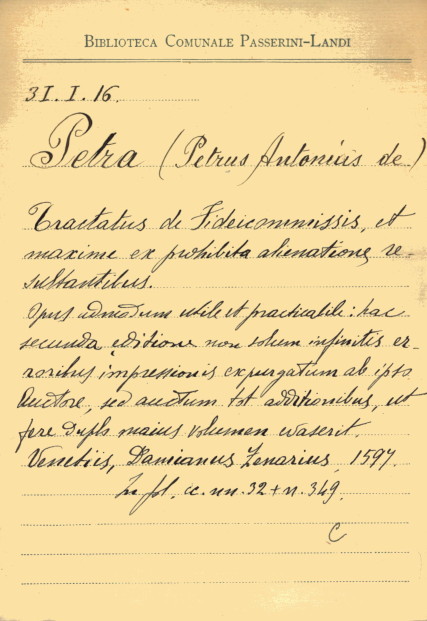 BIBLIOTECA COMUNALE PASSERINI-LANDI
3I.I.16.
Petra (Petrus Antonius de)
Tractatus de Fideicommissis, et
maxime ex prohibita alienatione re-
sultantibus.
Opus admodum utile et practicabile: hac
secunda editione non solum infinitis er-
roribus impressionis expurgatum ab ipso
Auctore, sed auctum tot additionibus, ut
fere duplo maius volumen evaserit.
Venetiis, Damianus Zenarius, 1597.
In fol. c. nn. 32 + n. 349.
C